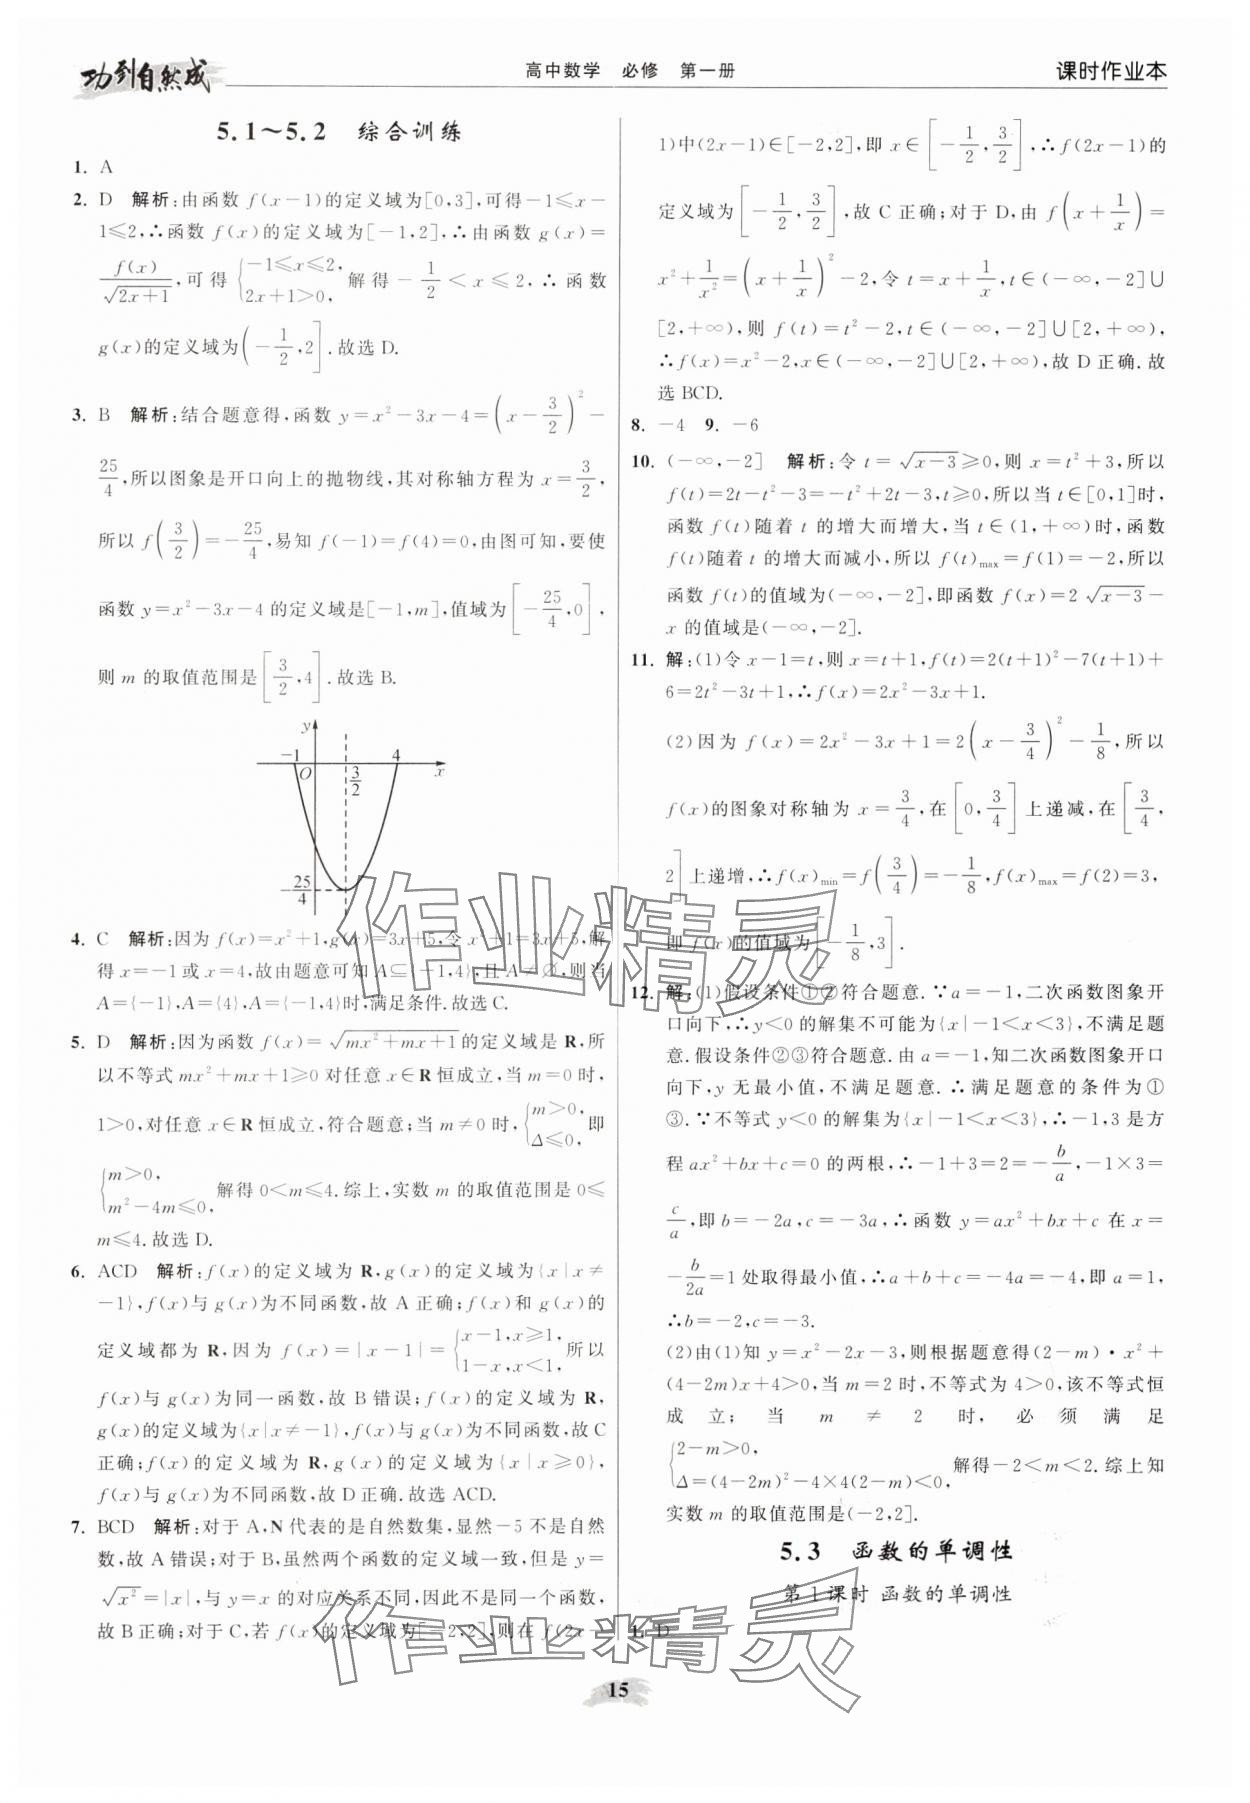 功到自然成
高中数学　必修　第一册
课时作业本
5.1～5.2　综合训练
1. A
2. D　解析:由函数 f(x－1)的定义域为[0,3],可得－1≤x－
1≤2,∴函数 f(x)的定义域为[－1,2],∴由函数 g(x)＝
f(x)/√(2x＋1),可得 {－1≤x≤2, 2x＋1>0, 解得－1/2<x≤2,∴函数
g(x)的定义域为(－1/2,2].故选 D.
3. B　解析:结合题意得,函数 y＝x²－3x－4＝(x－3/2)²－
25/4,所以图象是开口向上的抛物线,其对称轴方程为 x＝3/2,
所以 f(3/2)＝－25/4,易知 f(－1)＝f(4)＝0,由图可知,要使
函数 y＝x²－3x－4 的定义域是[－1,m],值域为[－25/4,0],
则 m 的取值范围是[3/2,4].故选 B.
y
－1
O
3/2
4
x
－25/4
4. C　解析:因为 f(x)＝x²＋1,g(x)＝3x＋5,令 x²＋1＝3x＋5,解
得 x＝－1 或 x＝4,故由题意可知 A⊆{－1,4},且 A≠∅,则当
A＝{－1},A＝{4},A＝{－1,4}时,满足条件.故选 C.
5. D　解析:因为函数 f(x)＝√(mx²＋mx＋1)的定义域是 R,所
以不等式 mx²＋mx＋1≥0 对任意 x∈R 恒成立,当 m＝0 时,
1>0,对任意 x∈R 恒成立,符合题意;当 m≠0 时,{m>0, Δ≤0, 即
{m>0, m²－4m≤0, 解得 0<m≤4.综上,实数 m 的取值范围是 0≤
m≤4.故选 D.
6. ACD　解析:f(x)的定义域为 R,g(x)的定义域为{x|x≠
－1},f(x)与 g(x)为不同函数,故 A 正确;f(x)和 g(x)的
定义域都为 R,因为 f(x)＝|x－1|＝{x－1,x≥1, 1－x,x<1, 所以
f(x)与 g(x)为同一函数,故 B 错误;f(x)的定义域为 R,
g(x)的定义域为{x|x≠－1},f(x)与 g(x)为不同函数,故 C
正确;f(x)的定义域为 R,g(x)的定义域为{x|x≥0},
f(x)与 g(x)为不同函数,故 D 正确.故选 ACD.
7. BCD　解析:对于 A,N 代表的是自然数集,显然－5 不是自然
数,故 A 错误;对于 B,虽然两个函数的定义域一致,但是 y＝
√x²＝|x|与 y＝x 的对应关系不同,因此不是同一个函数,
故 B 正确;对于 C,若 f(x)的定义域为[－2,2],则在 f(2x－
1)中(2x－1)∈[－2,2],即 x∈[－1/2,3/2],∴f(2x－1)的
定义域为[－1/2,3/2],故 C 正确;对于 D,由 f(x＋1/x)＝
x²＋1/x²＝(x＋1/x)²－2,令 t＝x＋1/x,t∈(－∞,－2]∪
[2,＋∞),则 f(t)＝t²－2,t∈(－∞,－2]∪[2,＋∞),
∴f(x)＝x²－2,x∈(－∞,－2]∪[2,＋∞),故 D 正确.故
选 BCD.
8. －4　9. －6
10. (－∞,－2]　解析:令 t＝√(x－3)≥0,则 x＝t²＋3,所以
f(t)＝2t－t²－3＝－t²＋2t－3,t≥0,所以当 t∈[0,1]时,
函数 f(t)随着 t 的增大而增大,当 t∈(1,＋∞)时,函数
f(t)随着 t 的增大而减小,所以 f(t)max＝f(1)＝－2,所以
函数 f(t)的值域为(－∞,－2],即函数 f(x)＝2√(x－3)－
x 的值域是(－∞,－2].
11. 解:(1)令 x－1＝t,则 x＝t＋1,f(t)＝2(t＋1)²－7(t＋1)＋
6＝2t²－3t＋1,∴f(x)＝2x²－3x＋1.
(2)因为 f(x)＝2x²－3x＋1＝2(x－3/4)²－1/8,所以
f(x)的图象对称轴为 x＝3/4,在[0,3/4]上递减,在[3/4,
2]上递增,∴f(x)min＝f(3/4)＝－1/8,f(x)max＝f(2)＝3,
即 f(x)的值域为[－1/8,3].
12. 解:(1)假设条件①②符合题意.∵a＝－1,二次函数图象开
口向下,∴y<0 的解集不可能为{x|－1<x<3},不满足题
意.假设条件②③符合题意.由 a＝－1,知二次函数图象开口
向下,y 无最小值,不满足题意.∴满足题意的条件为①
③.∵不等式 y<0 的解集为{x|－1<x<3},∴－1,3 是方
程 ax²＋bx＋c＝0 的两根,∴－1＋3＝2＝－b/a,－1×3＝
c/a,即 b＝－2a,c＝－3a,∴函数 y＝ax²＋bx＋c 在 x＝
－b/2a＝1 处取得最小值,∴a＋b＋c＝－4a＝－4,即 a＝1,
∴b＝－2,c＝－3.
(2)由(1)知 y＝x²－2x－3,则根据题意得(2－m)·x²＋
(4－2m)x＋4>0,当 m＝2 时,不等式为 4>0,该不等式恒
成立;当 m≠2 时,必须满足
{2－m>0, Δ＝(4－2m)²－4×4(2－m)<0, 解得－2<m<2.综上知
实数 m 的取值范围是(－2,2].
5.3　函数的单调性
第1课时 函数的单调性
1. D
作业精灵
作业精灵
15